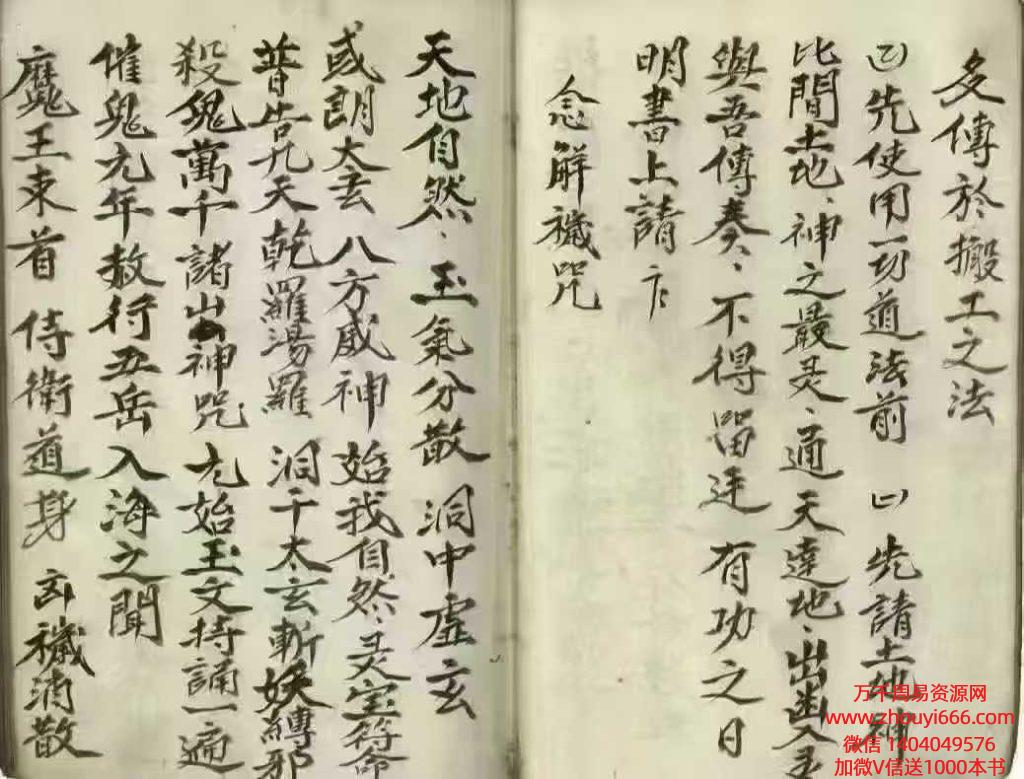 多傳於搬工之法
凹先使用一切道法前 凹先請土地神
比間土地、神之最灵、通天達地、出幽入
與吾傳奏、不得留 有功之日
明書上請
念解穢咒
天地自然、玉氣分散 洞中虛玄
或朗太玄 八方威神 始我自然、灵宝符命
普告九天 乾羅湯羅 洞干太玄 斬妖縛邪
殺鬼萬千 諸山神咒 元始玉文 持誦一遍
催鬼元年 救行五岳 入海之聞
魔王束首 侍衛道身 凶穢消散
万千周易资源网
www.zhouyi666.com
微信 1404049576
加微V信送1000本书